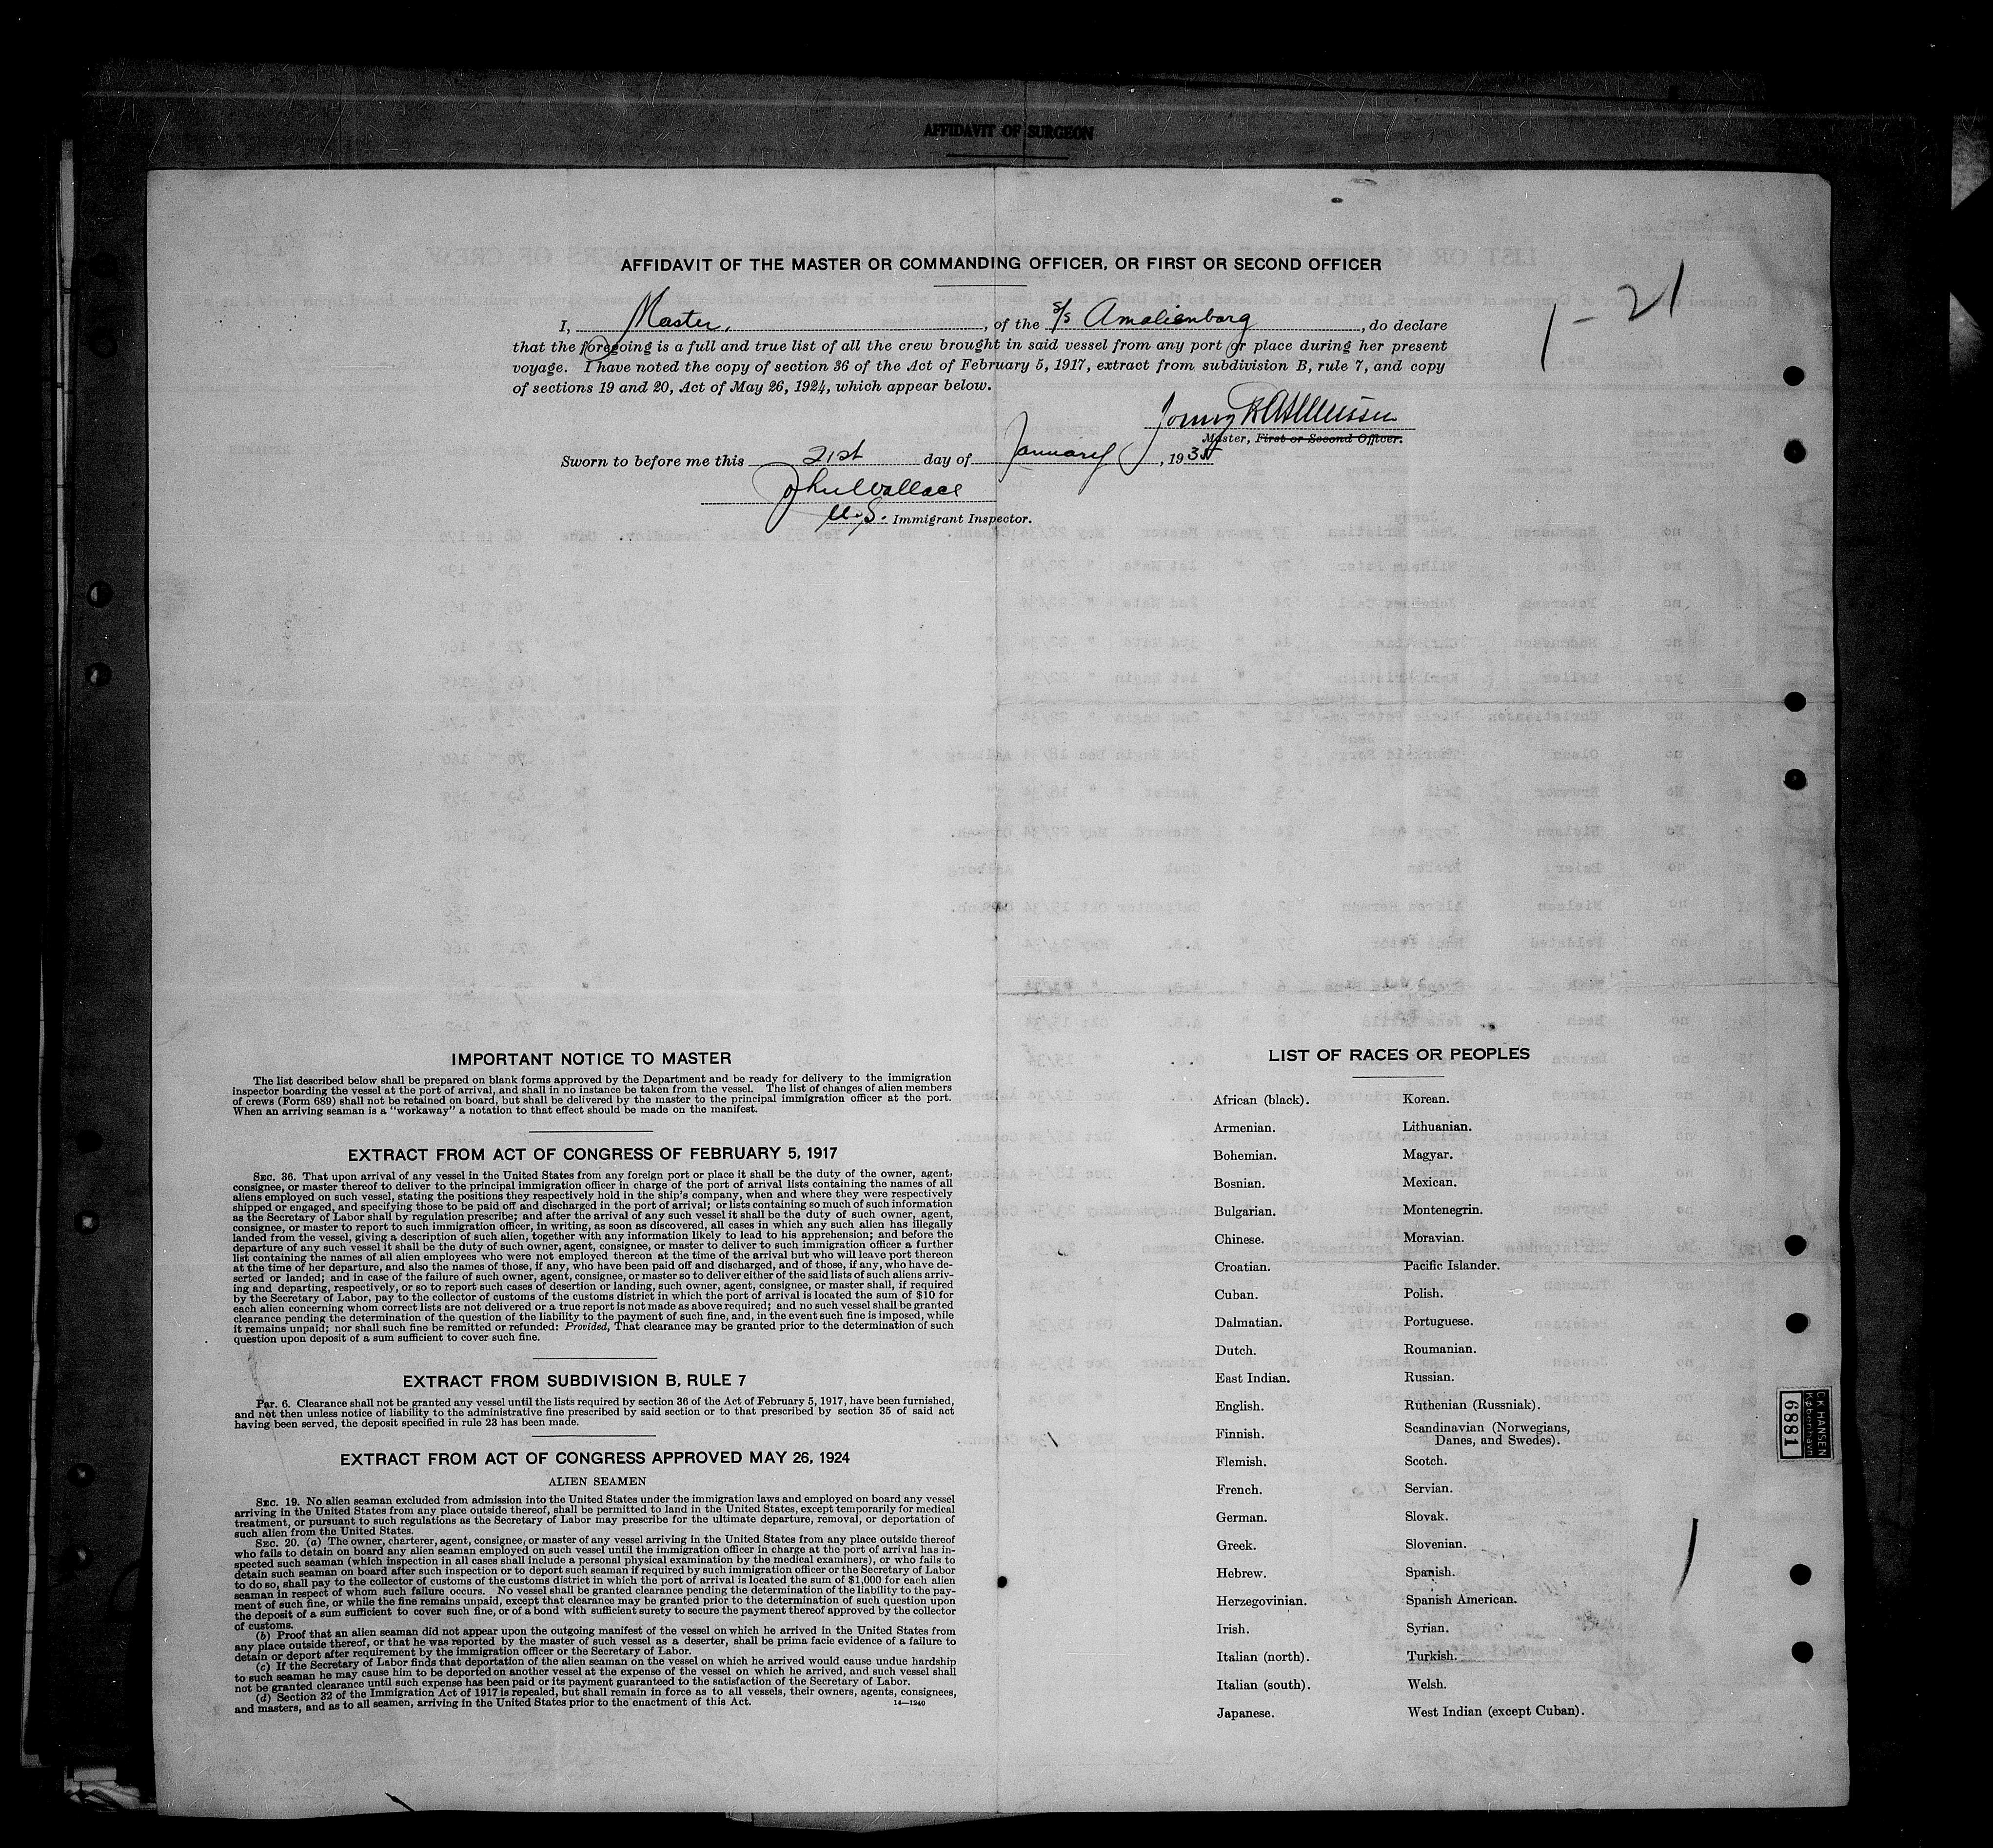 AFFIDAVIT OF SURGEON
AFFIDAVIT OF THE MASTER OR COMMANDING OFFICER, OR FIRST OR SECOND OFFICER
1-21
I, Master, of the S/S Amalienborg, do declare
that the foregoing is a full and true list of all the crew brought in said vessel from any port or place during her present
voyage. I have noted the copy of section 36 of the Act of February 5, 1917, extract from subdivision B, rule 7, and copy
of sections 19 and 20, Act of May 26, 1924, which appear below.
Master, First or Second Officer.
Sworn to before me this 21st day of January, 1935
John Wallace
U.S. Immigrant Inspector.
IMPORTANT NOTICE TO MASTER
The list described below shall be prepared on blank forms approved by the Department and be ready for delivery to the immigration
inspector boarding the vessel at the port of arrival, and shall in no instance be taken from the vessel. The list of changes of alien members
of crews (Form 689) shall not be retained on board, but shall be delivered by the master to the principal immigration officer at the port.
When an arriving seaman is a "workaway" a notation to that effect should be made on the manifest.
EXTRACT FROM ACT OF CONGRESS OF FEBRUARY 5, 1917
SEC. 36. That upon arrival of any vessel in the United States from any foreign port or place it shall be the duty of the owner, agent,
consignee, or master thereof to deliver to the principal immigration officer in charge of the port of arrival lists containing the names of all
aliens employed on such vessel, stating the positions they respectively hold in the ship's company, when and where they were respectively
shipped or engaged, and specifying those to be paid off and discharged in the port of arrival; or lists containing so much of such information
as the Secretary of Labor shall by regulation prescribe; and after the arrival of any such vessel it shall be the duty of such owner, agent,
consignee, or master to report to such immigration officer, in writing, as soon as discovered, all cases in which any such alien has illegally
landed from the vessel, giving a description of such alien, together with any information likely to lead to his apprehension; and before the
departure of any such vessel it shall be the duty of such owner, agent, consignee, or master to deliver to such immigration officer a further
list containing the names of all alien employees who were not employed thereon at the time of the arrival but who will leave port thereon
at the time of her departure, and also the names of those, if any, who have been paid off and discharged, and of those, if any, who have de-
serted or landed; and in case of the failure of such owner, agent, consignee, or master so to deliver either of the said lists of such aliens arriv-
ing and departing, respectively, or so to report such cases of desertion or landing, such owner, agent, consignee, or master shall, if required
by the Secretary of Labor, pay to the collector of customs of the customs district in which the port of arrival is located the sum of $10 for
each alien concerning whom correct lists are not delivered or a true report is not made as above required; and no such vessel shall be granted
clearance pending the determination of the question of the liability to the payment of such fine, and, in the event such fine is imposed, while
it remains unpaid; nor shall such fine be remitted or refunded: Provided, That clearance may be granted prior to the determination of such
question upon deposit of a sum sufficient to cover such fine.
EXTRACT FROM SUBDIVISION B, RULE 7
Par. 6. Clearance shall not be granted any vessel until the lists required by section 36 of the Act of February 5, 1917, have been furnished,
and not then unless notice of liability to the administrative fine prescribed by said section or to that prescribed by section 35 of said act
having been served, the deposit specified in rule 23 has been made.
EXTRACT FROM ACT OF CONGRESS APPROVED MAY 26, 1924
ALIEN SEAMEN
SEC. 19. No alien seaman excluded from admission into the United States under the immigration laws and employed on board any vessel
arriving in the United States from any place outside thereof, shall be permitted to land in the United States, except temporarily for medical
treatment, or pursuant to such regulations as the Secretary of Labor may prescribe for the ultimate departure, removal, or deportation of
such alien from the United States.
SEC. 20. (a) The owner, charterer, agent, consignee, or master of any vessel arriving in the United States from any place outside thereof
who fails to detain on board any alien seaman employed on such vessel until the immigration officer in charge at the port of arrival has in-
spected such seaman (which inspection in all cases shall include a personal physical examination by the medical examiners), or who fails to
detain such seaman on board after such inspection or to deport such seaman if required by such immigration officer or the Secretary of Labor
to do so, shall pay to the collector of customs of the customs district in which the port of arrival is located the sum of $1,000 for each alien
seaman in respect of whom such failure occurs. No vessel shall be granted clearance pending the determination of the liability to the pay-
ment of such fine, or while the fine remains unpaid, except that clearance may be granted prior to the determination of such question upon
the deposit of a sum sufficient to cover such fine, or of a bond with sufficient surety to secure the payment thereof approved by the collector
of customs.
(b) Proof that an alien seaman did not appear upon the outgoing manifest of the vessel on which he arrived in the United States from
any place outside thereof, or that he was reported by the master of such vessel as a deserter, shall be prima facie evidence of a failure to
detain or deport after requirement by the immigration officer or the Secretary of Labor.
(c) If the Secretary of Labor finds that deportation of the alien seaman on the vessel on which he arrived would cause undue hardship
to such seaman he may cause him to be deported on another vessel at the expense of the vessel on which he arrived, and such vessel shall
not be granted clearance until such expense has been paid or its payment guaranteed to the satisfaction of the Secretary of Labor.
(d) Section 32 of the Immigration Act of 1917 is repealed, but shall remain in force as to all vessels, their owners, agents, consignees,
and masters, and as to all seamen, arriving in the United States prior to the enactment of this Act.
14—1240
LIST OF RACES OR PEOPLES
African (black).
Armenian.
Bohemian.
Bosnian.
Bulgarian.
Chinese.
Croatian.
Cuban.
Dalmatian.
Dutch.
East Indian.
English.
Finnish.
Flemish.
French.
German.
Greek.
Hebrew.
Herzegovinian.
Irish.
Italian (north).
Italian (south).
Japanese.
Korean.
Lithuanian.
Magyar.
Mexican.
Montenegrin.
Moravian.
Pacific Islander.
Polish.
Portuguese.
Roumanian.
Russian.
Ruthenian (Russniak).
Scandinavian (Norwegians,
Danes, and Swedes).
Scotch.
Servian.
Slovak.
Slovenian.
Spanish.
Spanish American.
Syrian.
Turkish.
Welsh.
West Indian (except Cuban).
C.K. HANSEN
København
6881